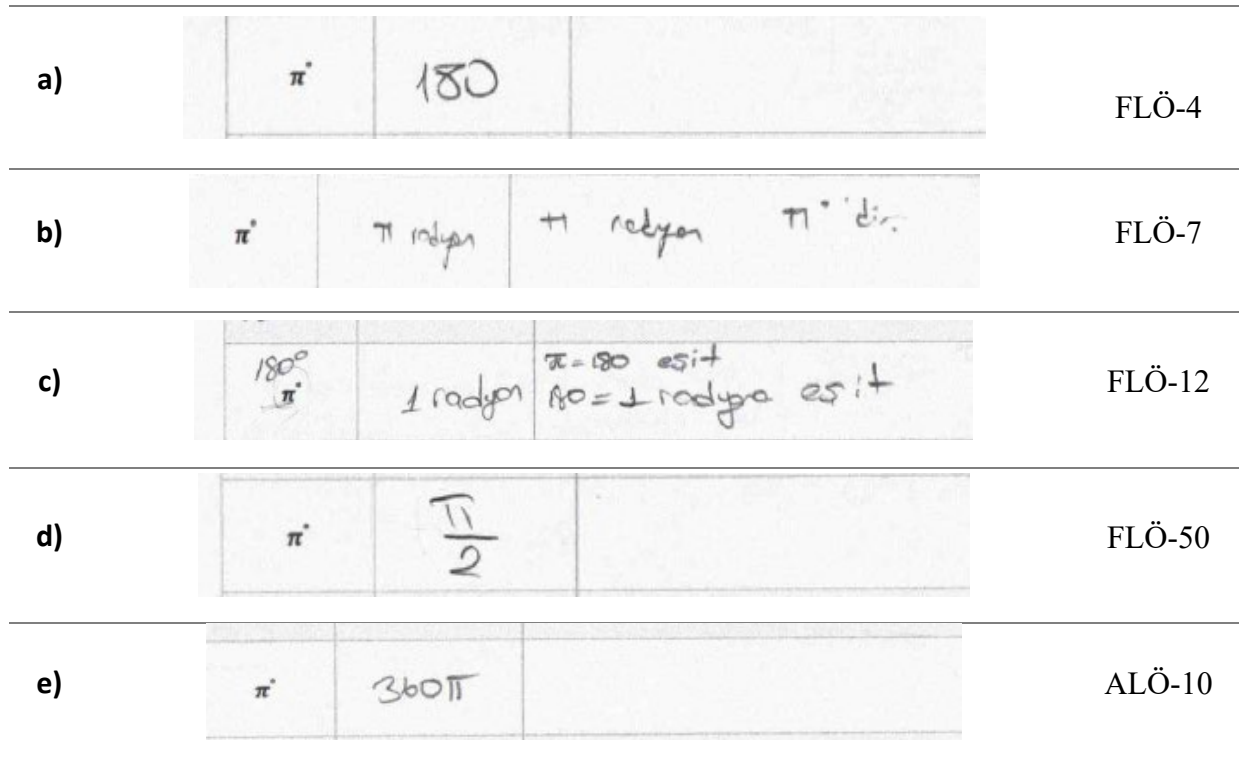 a) π° 180 FLÖ-4
b) π° π radyan π radyan π° 'dir. FLÖ-7
c) 180°
π° 1 radyan π=180 eşit
180=1 radyana eşit FLÖ-12
d) π° π/2 FLÖ-50
e) π° 360π ALÖ-10